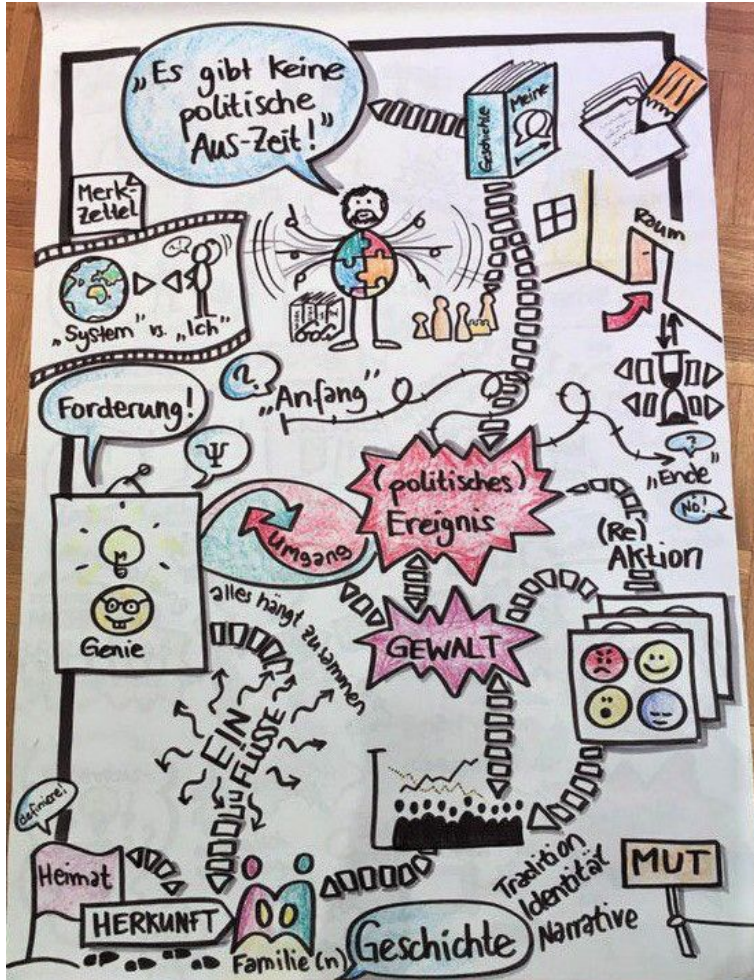 „Es gibt keine
politische
Aus-Zeit!"
Geschichte
Meine
Merk-
zettel
Raum
„System" vs. „Ich"
?!
Forderung!
?
„Anfang"
?
„Ende"
No!
Ψ
(politisches)
Ereignis
Umgang
(Re)
Aktion
Genie
alles hängt zusammen
GEWALT
EIN
FLÜSSE
definiere!
Heimat
HERKUNFT
Familie(n)
Geschichte
Tradition
Identität
Narrative
MUT